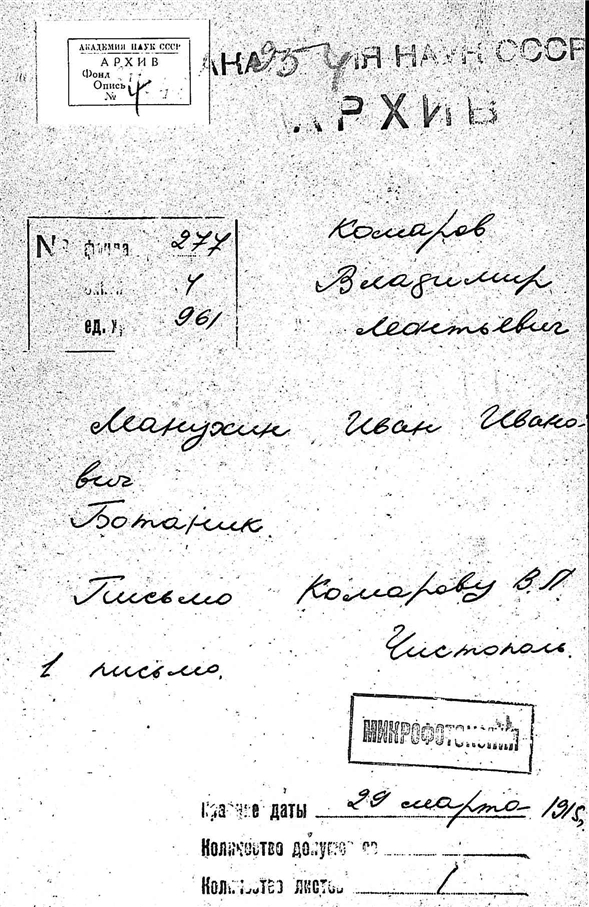 АКАДЕМИЯ НАУК СССР
АРХИВ
Фонд
Опись
№ 4
АКА ИЯ НАУК СССР
АРХИВ
№ фонда 277
4
ед. х 961
Комаров
Владимир
Леонтьевич
Манухин Иван Ивано-
вич
Ботаник
Письмо Комарову В.Л.
Чистополь.
1 письмо.
МИКРОФОТОКОПИЯ
Крайние даты 29 марта 1915,
Количество документов
Количество листов 1